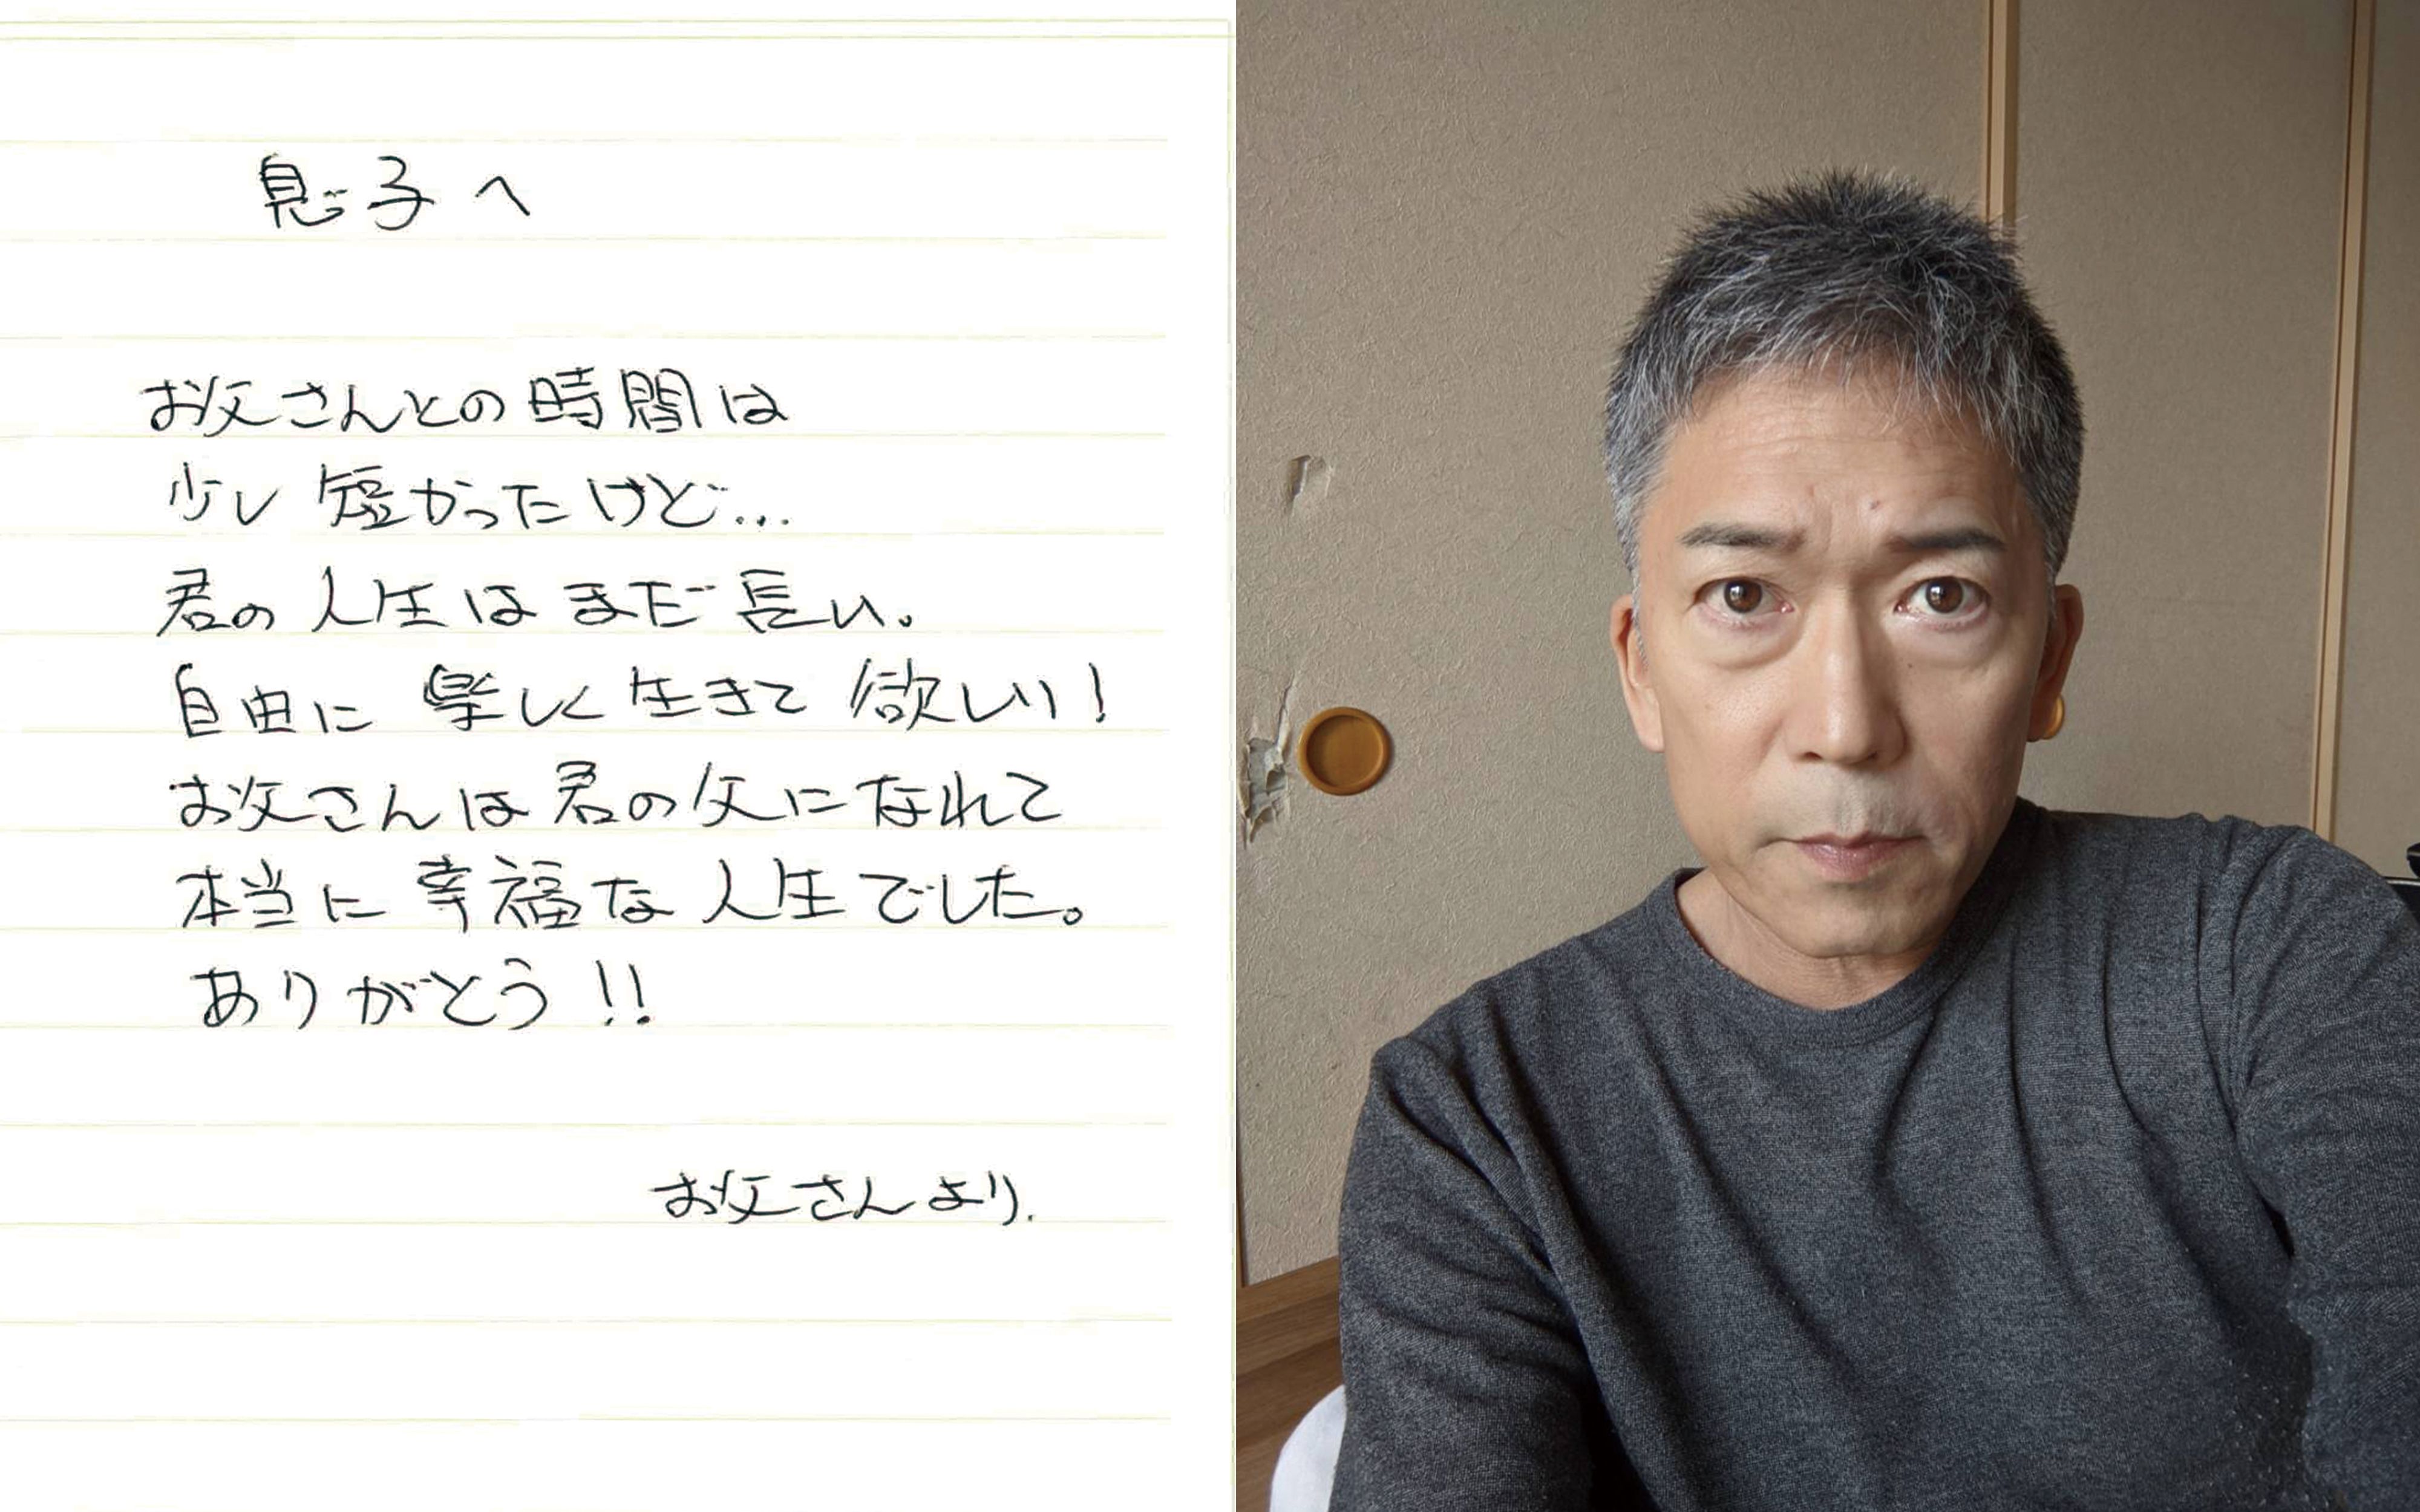 息子へ
お父さんとの時間は
少し短かったけど…
君の人生はまだ長い。
自由に楽しく生きて欲しい！
お父さんは君の父になれて
本当に幸福な人生でした。
ありがとう！！
お父さんより.